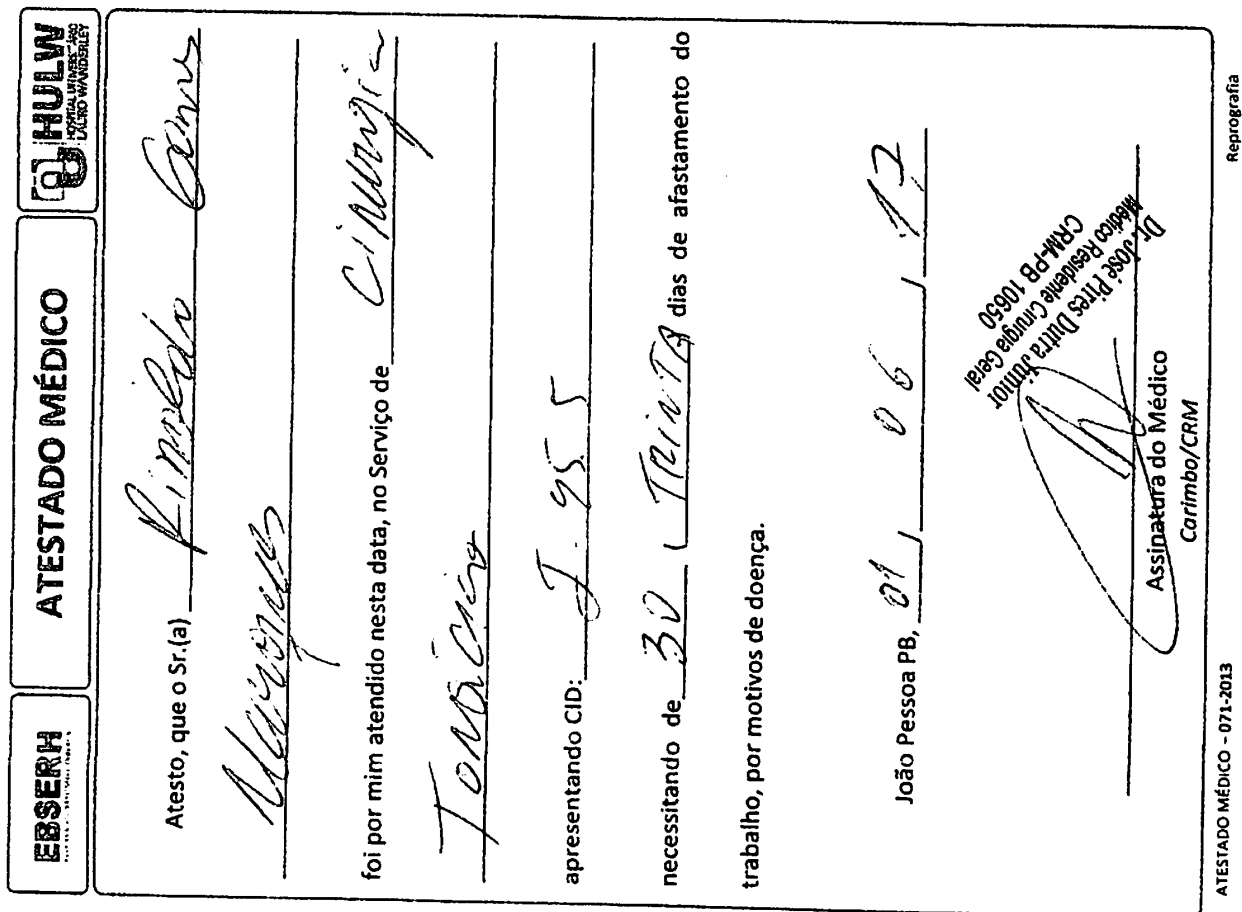 EBSERH
ATESTADO MÉDICO
HULW
HOSPITAL UNIVERSITÁRIO
LAURO WANDERLEY
Atesto, que o Sr.(a) Rinaldo
foi por mim atendido nesta data, no Serviço de Cirurgia
Torácica
apresentando CID: J.95.5
necessitando de 30 ( TRINTA dias de afastamento do
trabalho, por motivos de doença.
João Pessoa PB, 01 / 06 / 17
Dr. José Pires Dutra Júnior
Médico Residente Cirurgia Geral
CRM-PB 10650
Assinatura do Médico
Carimbo/CRM
ATESTADO MÉDICO - 071-2013
Reprografia